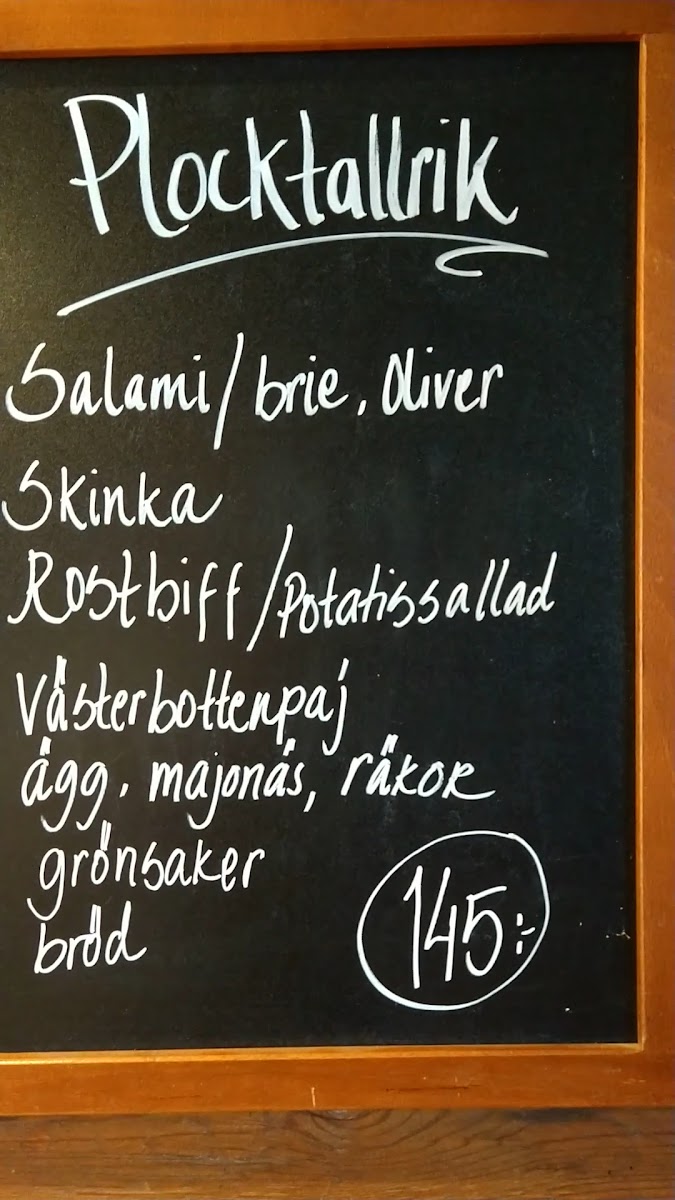 Plocktallrik
Salami/brie, Oliver
Skinka
Rostbiff/Potatissallad
Västerbottenpaj
ägg, majonäs, räkor
grönsaker
bröd
145:-